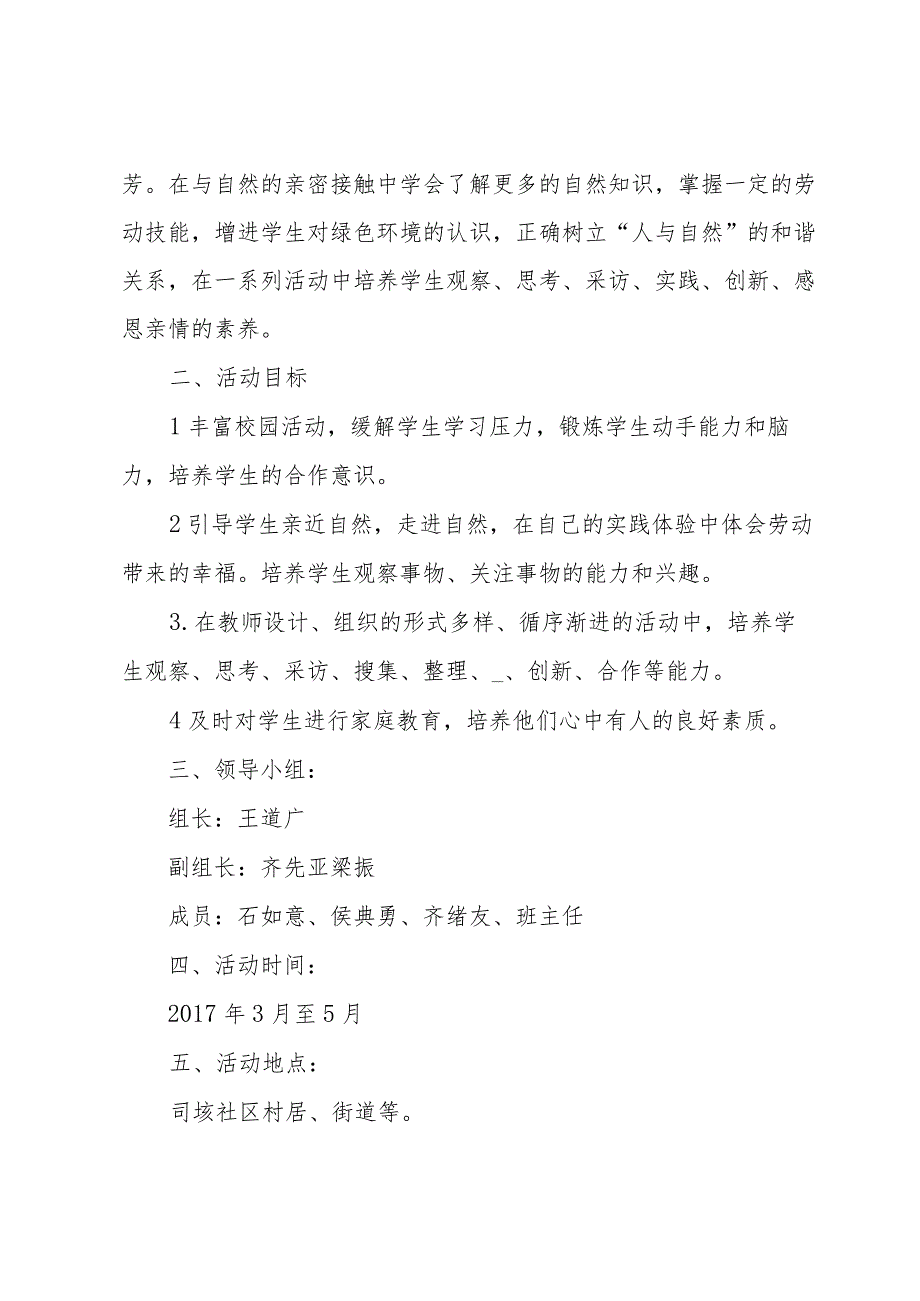 芳。在与自然的亲密接触中学会了解更多的自然知识，掌握一定的劳
动技能，增进学生对绿色环境的认识，正确树立“人与自然”的和谐
关系，在一系列活动中培养学生观察、思考、采访、实践、创新、感
恩亲情的素养。
二、活动目标
1丰富校园活动，缓解学生学习压力，锻炼学生动手能力和脑
力，培养学生的合作意识。
2引导学生亲近自然，走进自然，在自己的实践体验中体会劳动
带来的幸福。培养学生观察事物、关注事物的能力和兴趣。
3.在教师设计、组织的形式多样、循序渐进的活动中，培养学
生观察、思考、采访、搜集、整理、_、创新、合作等能力。
4及时对学生进行家庭教育，培养他们心中有人的良好素质。
三、领导小组：
组长：王道广
副组长：齐先亚梁振
成员：石如意、侯典勇、齐绪友、班主任
四、活动时间：
2017年3月至5月
五、活动地点：
司垓社区村居、街道等。